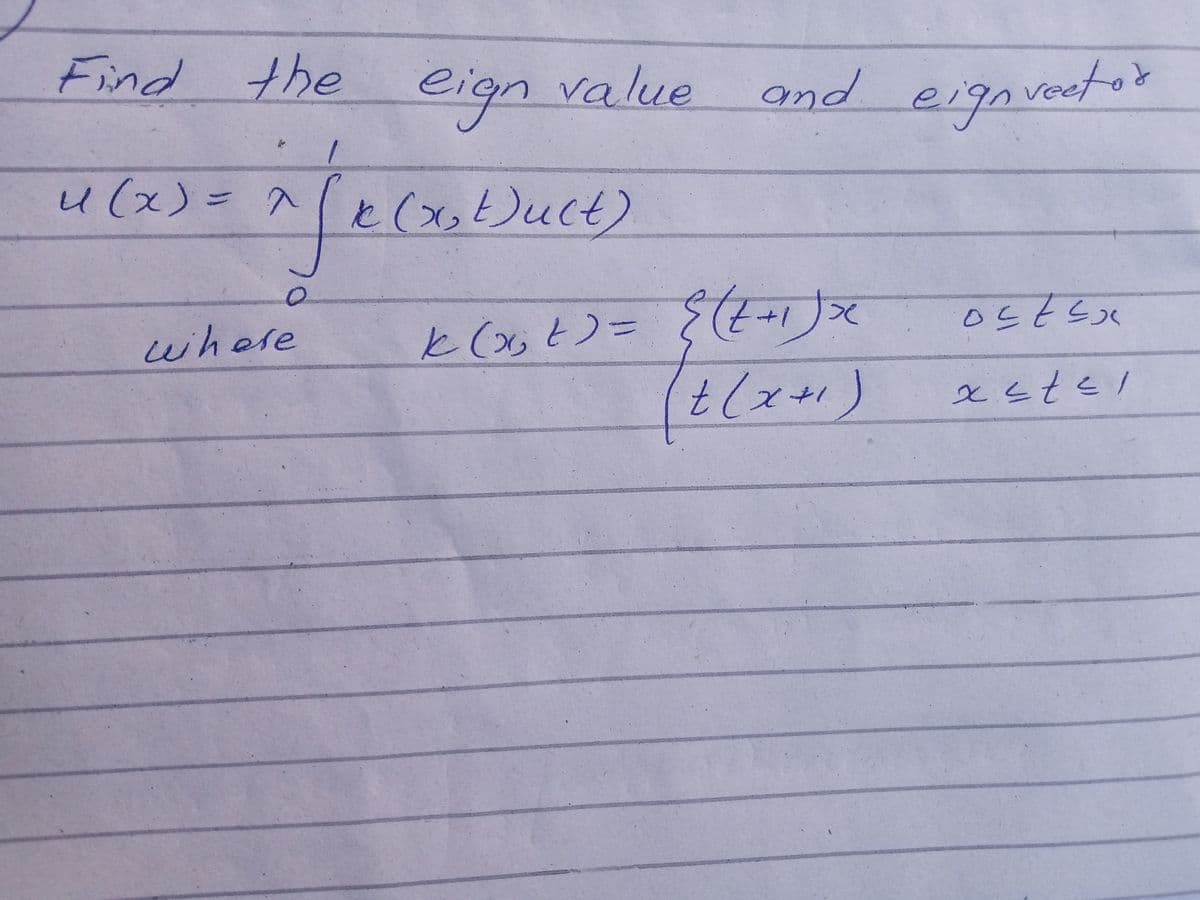 Find the eign value and eignvector
u(x) = λ∫₀¹ k(x,t)u(t)
where k(x,t) = { (t+1)x 0≤t≤x
t(x+1) x≤t≤1